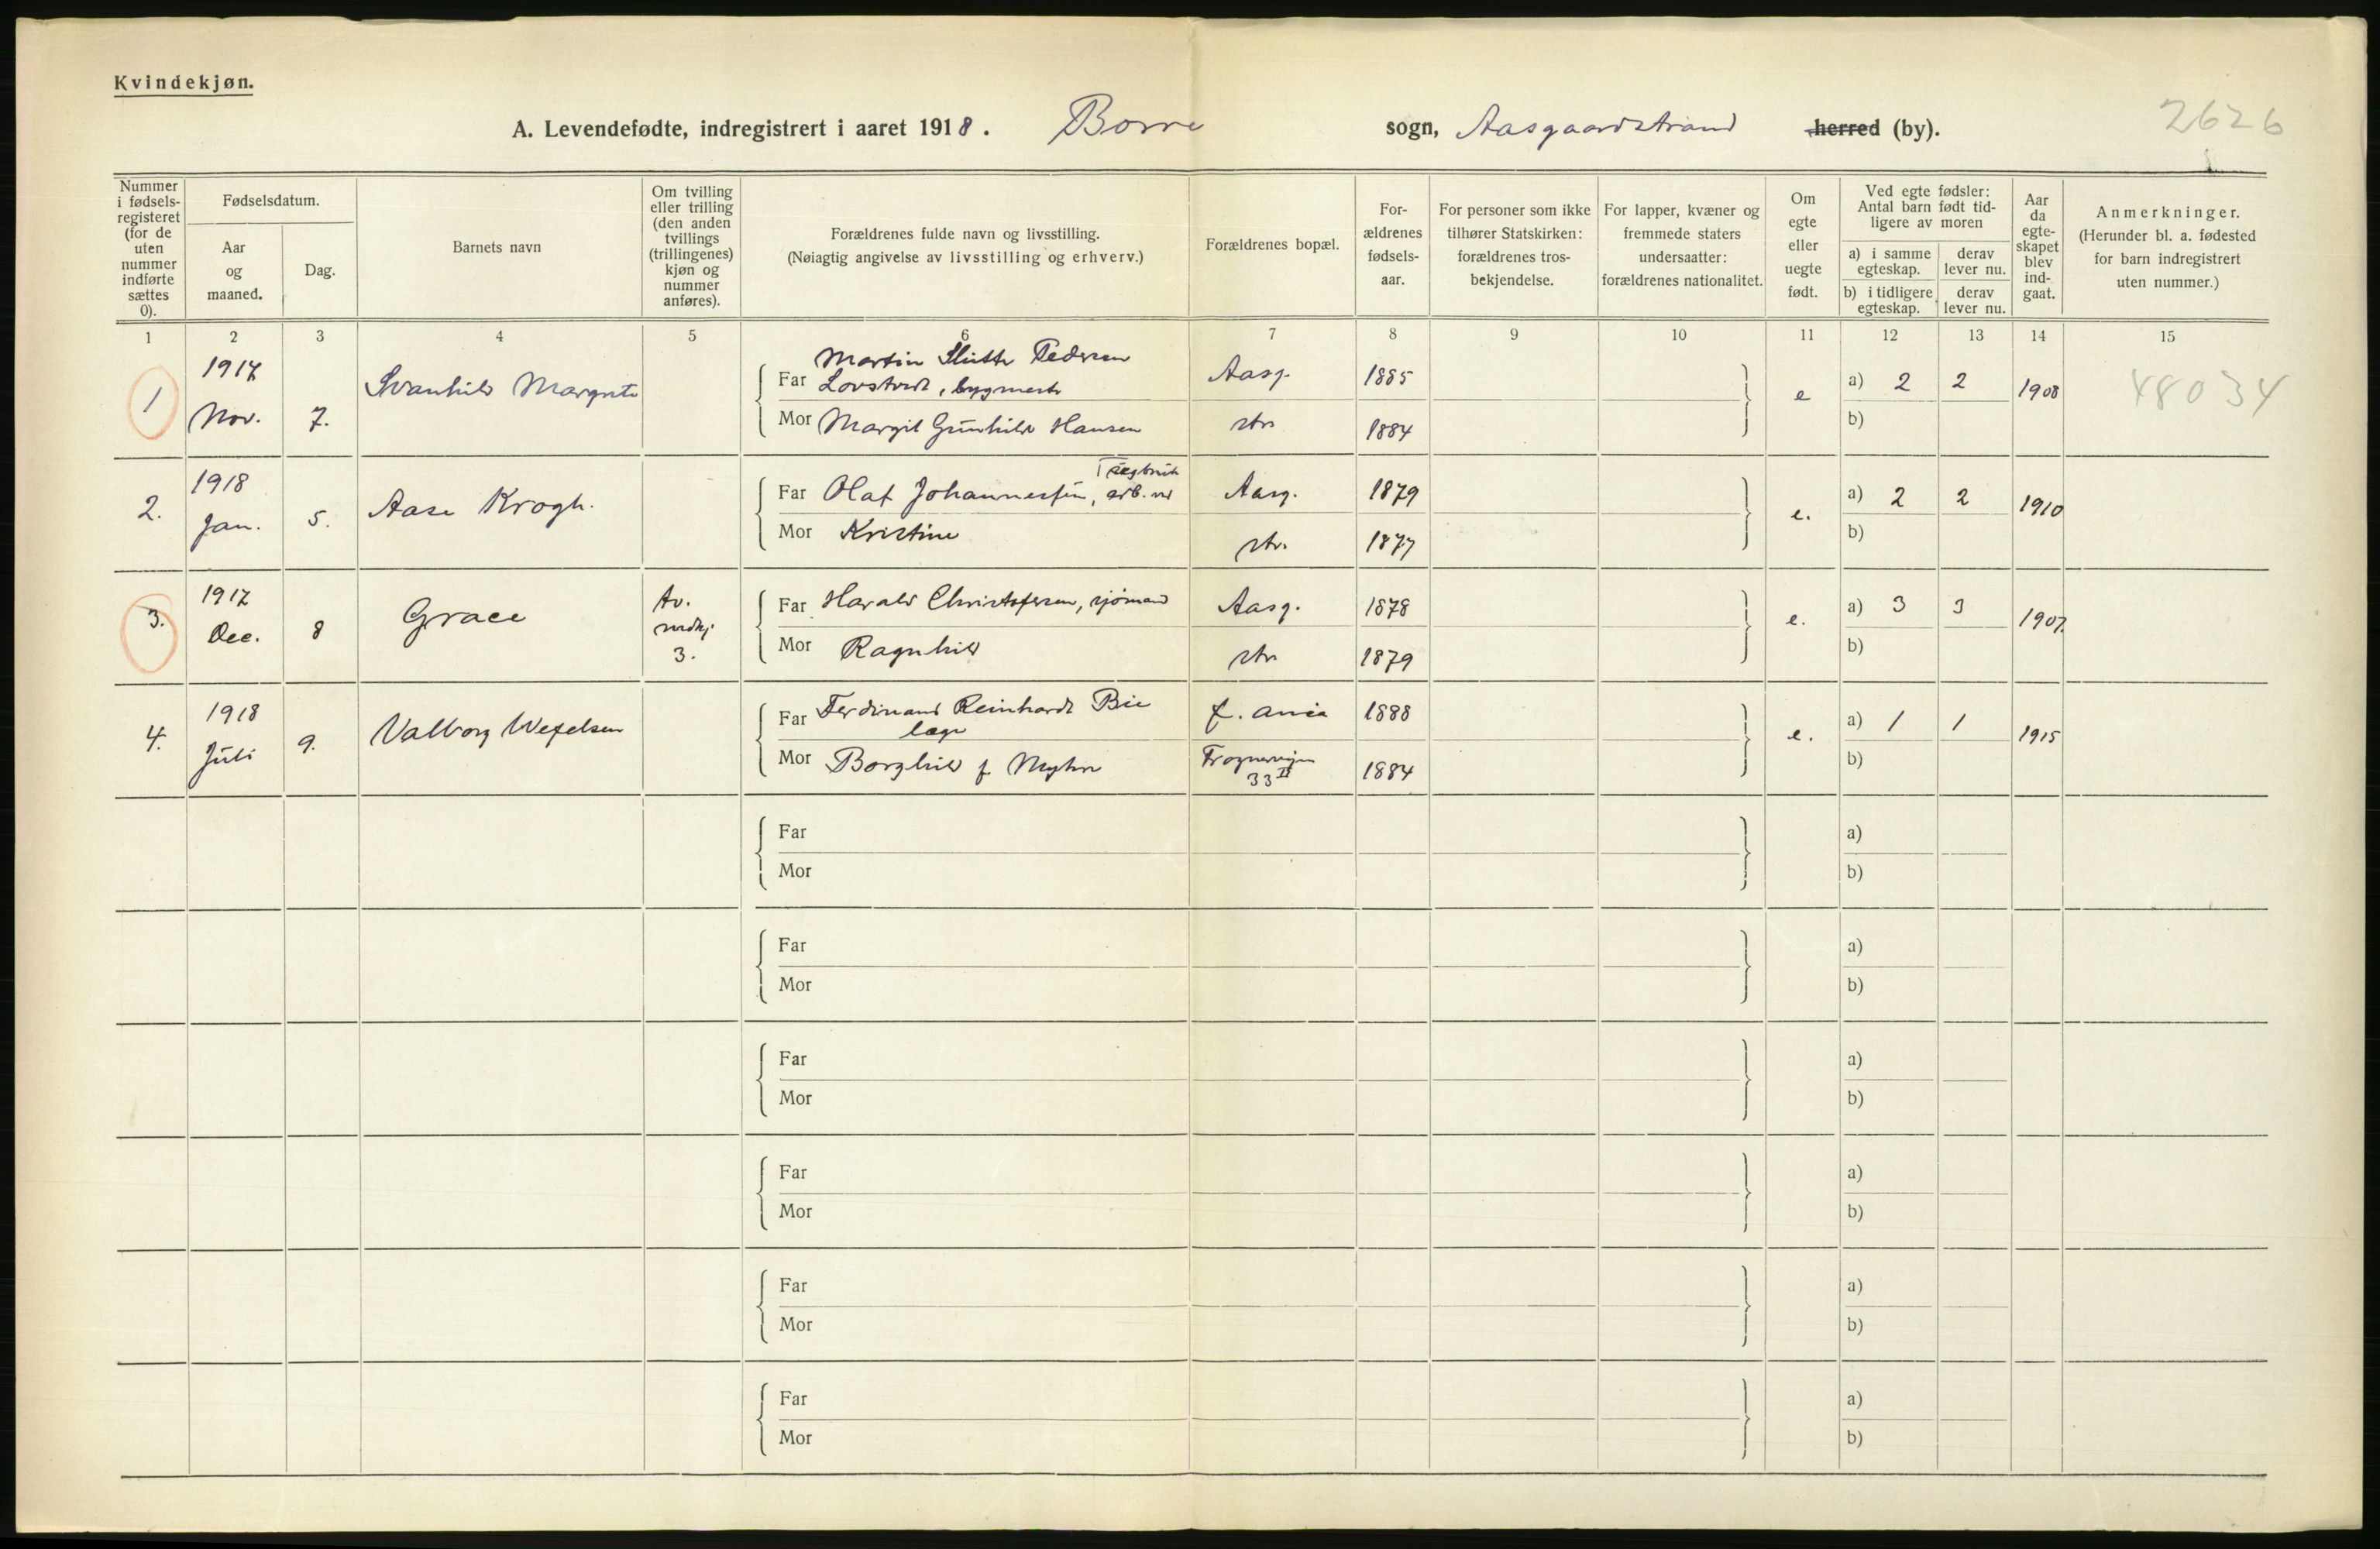 Kvindekjøn.
A. Levendefødte, indregistrert i aaret 1918. Borre sogn, Aasgaardstrand herred (by). 2626
Nummer i fødsels-registeret (for de uten nummer indførte sættes 0).
Fødselsdatum.
Aar og maaned.
Dag.
Barnets navn
Om tvilling eller trilling (den anden tvillings (trillingenes) kjøn og nummer anføres).
Forældrenes fulde navn og livsstilling.
(Nøiagtig angivelse av livsstilling og erhverv.)
Forældrenes bopæl.
For-ældrenes fødsels-aar.
For personer som ikke tilhører Statskirken: forældrenes tros-bekjendelse.
For lapper, kvæner og fremmede staters undersaatter: forældrenes nationalitet.
Om egte eller uegte født.
Ved egte fødsler: Antal barn født tid-ligere av moren
a) i samme egteskap.
derav lever nu.
b) i tidligere egteskap.
derav lever nu.
Aar da egte-skapet blev ind-gaat.
Anmerkninger.
(Herunder bl. a. fødested for barn indregistrert uten nummer.)
1 2 3 4 5 6 7 8 9 10 11 12 13 14 15
1 1917 Nov. 7. Svanhild Margrete
Martin Pedersen
Far Lovstvedt, bygmester Aasg. 1885 e a) 2 2 1908 48034
Mor Margit Gunhild Hansen str. 1884 b)
2. 1918 Jan. 5. Aase Krogh.
Far Olaf Johannessen, arb. ved Aasg. 1879 e. a) 2 2 1910
Mor Kristine str. 1877 b)
3. 1917 Dec. 8 Grace Tv. mdkj 3.
Far Harald Christofersen, sjømand Aasg. 1878 e. a) 3 3 1907
Mor Ragnhild str. 1879 b)
4. 1918 Juli 9. Valborg Wefelsen
Far Ferdinand Reinhardt Bie 1888 e. a) 1 1 1915
læge
Mor Borghild f. Myhre Frognerveien 33 II 1884 b)
Far a)
Mor b)
Far a)
Mor b)
Far a)
Mor b)
Far a)
Mor b)
Far a)
Mor b)
Far a)
Mor b)